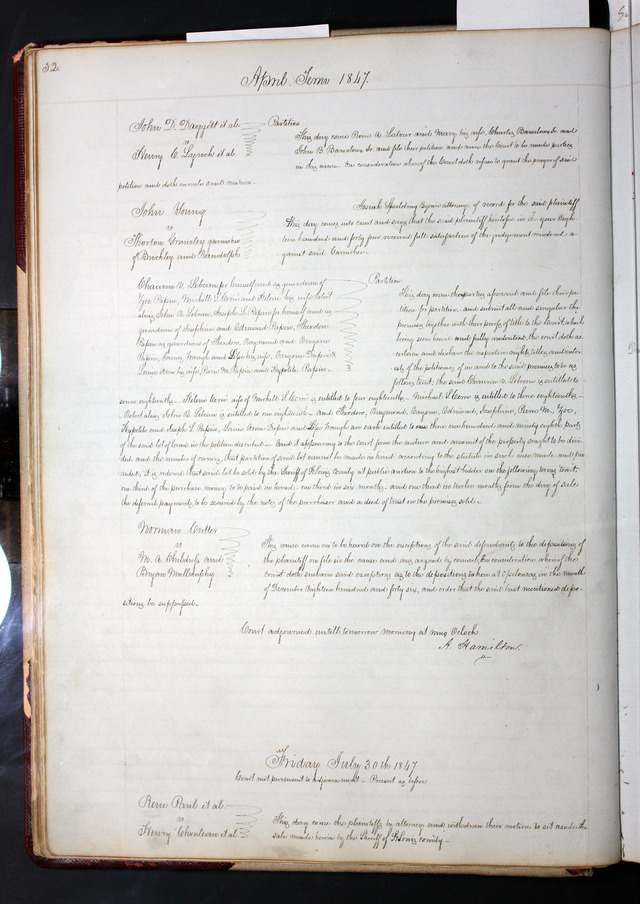 32.
April Term 1847
John D. Daggett et al
vs
Henry C. Lynch et al
Partition
This day come Rene A. Latour and Mary his wife, Charles Barsaloux Sr. and
John B. Barsaloux Sr. and file their petition and move the Court to be made parties
in this cause. On consideration whereof the Court doth refuse to grant the prayer of said
petition and doth overrule said motion.
John Young
vs
Thorton Grimsley garnishee
of Brickley and Randolph
Josiah Spalding Esquire attorney of record for the said plaintiff
This day comes into court and says that the said plaintiff heretofore in the year Eigh-
teen hundred and forty four received full satisfaction of the judgement rendered a-
gainst said Garnishee
for himself and as guardian of
Papin, Michell S. Cerré and Helene his wife
John A. Lebeau, Joseph L. Papin for himself and as
guardian of Josephine and Edmund Papin, Theodore
Papin as guardian of Theodore, Raymond and Gregoire
Papin, Gough and his wife,
his wife, Pierre M. Papin and Hypolite Papin
Partition
This day come the parties aforesaid and file their pe-
tition for partition, and submit all and singular the
premises together with their proofs of title to the Court, which
being seen heard and fully understood, the court doth as-
certain and declare the respective rights, titles, and inter-
ests, of the petitioners, of in and to the said premises, to be as
follows, to wit, the said is entitled to
nine eighteenths. Helene Cerré wife of Michell S. Cerré is entitled to four eighteenths. Michael S. Cerré is entitled to three eighteenths.
John B. Lebeau is entitled to one eighteenth. and Theodore, Raymond, Gregoire, Edmund, Josephine, Pierre M., Zoe,
Hypolite and Joseph L. Papin, Louisa Ann and Gough are each entitled to one three one hundred and ninety eighth part,
of the said lot of land in the petition described. And it appearing to the court from the nature and amount of the property sought to be divi-
ded and the number of owners, that partition of said lot cannot be made in kind according to the statute in such case made and pro-
vided, it is ordered that said lot be sold by the Sheriff of St. Louis County at public auction to the highest bidder on the following terms, to wit;
one third of the purchase money, to be paid in hand, one third in six months, and one third in twelve months from the day of sale
the deferred payments to be secured by the notes of the purchaser and a deed of trust on the premises sold.
Norman Cutter
vs
M. A. Childress and
Bryan Mullanphy
This cause came on to be heard on the exceptions of the said defendants to the depositions of
the plaintiff on file in the cause and was argued by counsel, On consideration whereof the
court doth sustain said exceptions as to the depositions taken at Opelousas in the month
of December Eighteen hundred and forty six, and order that the said last mentioned depo-
sitions be suppressed.
Court adjourned untill tomorrow morning at nine Oclock
A. Hamilton.
Friday July 30th 1847
Court met pursuant to adjournment - Present as before
Rene Paul et al
vs
Henry Chouteau et al
This day come the plaintiffs by attorney and withdraw their motion to set aside the
sale made herein by the Sheriff of St Louis county -